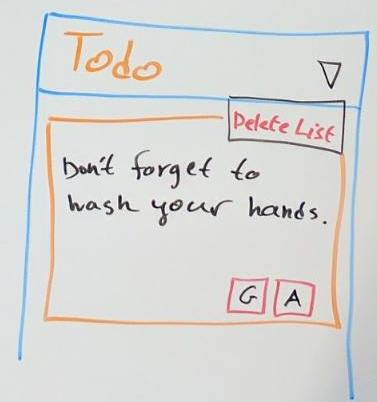 Todo
Delete List
Don't forget to
wash your hands.
G A